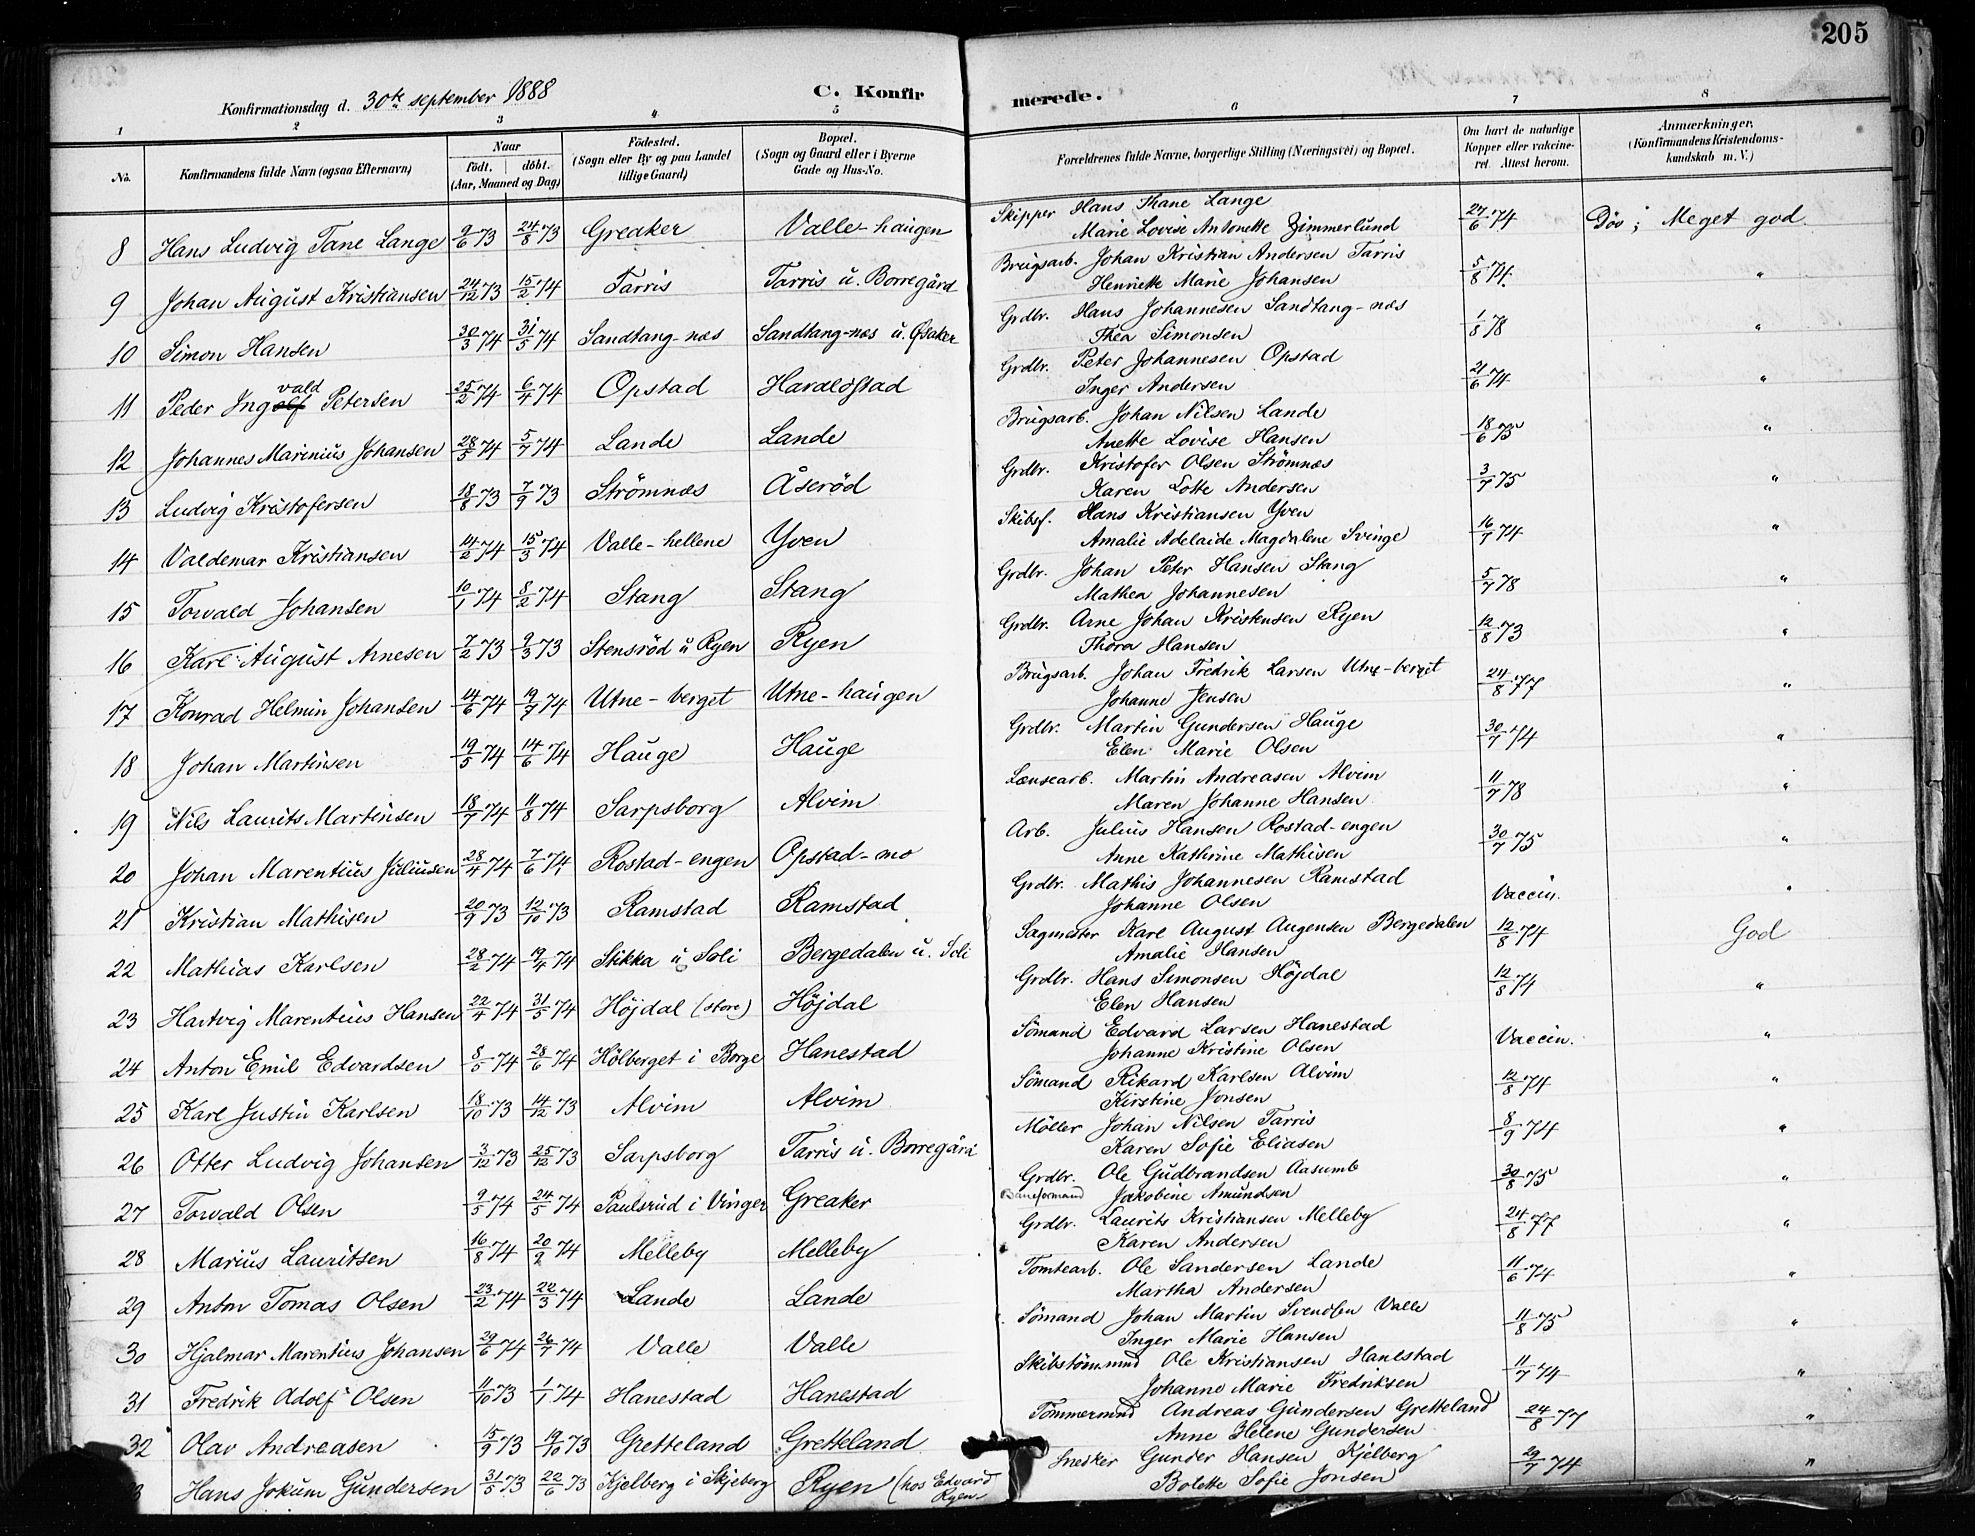 205
Konfirmationsdag d. 30te september 1888 C. Konfirmerede.
1 2 3 4 5 6 7 8
No. Konfirmandens fulde Navn (ogsaa Efternavn) Naar födt. döbt. (Aar, Maaned og Dag) Födested. (Sogn eller By og paa Landet tillige Gaard) Bopæl. (Sogn og Gaard eller i Byerne Gade og Hus-No. Forældrenes fulde Navne, borgerlige Stilling (Næringsvei) og Bopæl. Om havt de naturlige Kopper eller vaccineret. Attest herom. Anmærkninger. (Konfirmandens Kristendomskundskab m. V.)
8 Hans Ludvig Tane Lange 9/6 73 24/8 73 Greaker Valle-haugen Skipper Hans Thane Lange
Marie Lovise Antonette Zimmerlund 27/6 74 Döv; Meget god
9 Johan August Kristiansen 24/12 73 15/2 74 Tarris Tarris u. Borregård Brugsarb. Johan Kristian Andersen Tarris
Henriette Marie Johansen 5/8 74. "
10 Simon Hansen 30/3 74 31/5 74 Sandtang-næs Sandtang-næs u. Opsaker Grdbr. Hans Johannesen Sandtang-næs
Thea Simonsen 1/8 78 "
11 Peder Ingolf vald Petersen 25/2 74 6/4 74 Opstad Haraldstad Grdbr. Peter Johannesen Opstad
Inger Andersen 21/6 74 "
12 Johannes Marinius Johansen 28/5 74 5/7 74 Lande Lande Brugsarb. Johan Nilsen Lande
Anette Lovise Hansen 18/6 75 "
13 Ludvig Kristofersen 18/8 73 7/9 73 Strömnæs Åseröd Grdbr. Kristofer Olsen Strömnæs
Karen Lotte Andersen 3/7 75 "
14 Valdemar Kristiansen 14/2 74 15/3 74 Valle-hellene Yven Skibsf. Hans Kristiansen Yven
Amalie Adelaide Magdalene Svinge 16/7 74 "
15 Torvald Johansen 10/1 74 8/2 74 Stang Stang Grdbr. Johan Peter Hansen Stang
Mathea Johannesen 5/7 78 "
16 Karl August Arnesen 7/2 73 9/3 73 Stensröd u Ryen Ryen Grdbr. Arne Johan Kristensen Ryen
Thora Hansen 12/8 73 "
17 Konrad Helmin Johansen 14/6 74 19/7 74 Utne-berget Utne-haugen Brugsarb. Johan Fredrik Larsen Utne-berget
Johanne Jensen 24/8 77 "
18 Johan Martinsen 19/5 74 14/6 74 Hauge Hauge Grdbr. Martin Gundersen Hauge
Elen Marie Olsen 30/7 74 "
19 Nils Laurits Martinsen 18/7 74 11/8 74 Sarpsborg Alvim Lænsearb. Martin Andreasen Alvim
Maren Johanne Hansen 11/7 78 "
20 Johan Marentius Juliusen 28/4 74 7/6 74 Rostad-engen Opstad-mo Arb. Julius Hansen Rostad-engen
Anne Kathrine Mathisen 30/7 75 "
21 Kristian Mathisen 20/9 73 12/10 73 Ramstad Ramstad Grdbr. Mathis Johannesen Ramstad
Johanne Olsen Vaccin. "
22 Mathias Karlsen 28/2 74 19/4 74 Stikka u Soli Bergedalen u. Soli Sagmester Karl August Augensen Bergedalen
Amalie Hansen 12/8 74 God
23 Hartvig Marentius Hansen 22/4 74 31/5 74 Höjdal (store) Höjdal Grdbr. Hans Simonsen Höjdal
Elen Hansen 12/8 74 "
24 Anton Emil Edvardsen 8/5 74 28/6 74 Hölberget i Borge Hanestad Sömand Edvard Larsen Hanestad
Johanne Kristine Olsen Vaccin. "
25 Karl Justin Karlsen 18/10 73 14/12 73 Alvim Alvim Sömand Rikard Karlsen Alvim
Kirstine Jonsen 12/8 74 "
26 Otter Ludvig Johansen 3/12 73 25/12 73 Sarpsborg Tarris u. Borregård Möller Johan Nilsen Tarris
Karen Sofie Eliasen 8/9 74 "
27 Torvald Olsen 9/5 74 24/5 74 Paulsrud i Vinger Greaker Grdbr. Ole Gudbrandsen Aasumb
Baneformand Jakobine Amundsen 30/8 75 "
28 Marius Lauritsen 16/8 74 20/9 74 Melleby Melleby Grdbr. Laurits Kristiansen Melleby
Karen Andersen 24/8 77 "
29 Anton Tomas Olsen 23/2 74 22/3 74 Lande Lande Tomtearb. Ole Sandersen Lande
Martha Andersen 11/6 74 "
30 Hjalmar Marentius Johansen 29/6 74 26/7 74 Valle Valle Sömand Johan Martin Svendsen Valle
Inger Marie Hansen 11/8 75 "
31 Fredrik Adolf Olsen 11/10 73 1/1 74 Hanestad Hanestad Skibstömmd Ole Kristiansen Hanestad
Johanne Marie Fredriksen 11/7 74 "
32 Olav Andreasen 15/9 73 19/10 73 Gretteland Gretteland Tömmermnd Andreas Gundersen Gretteland
Anne Helene Gundersen 24/8 77 "
3 Hans Jokum Gundersen 31/5 73 22/6 73 Kjelberg i Skjeberg Ryen (hos Edvard Ryen Snedker Gunder Hansen Kjelberg
Bolette Sofie Jonsen 29/7 74 "